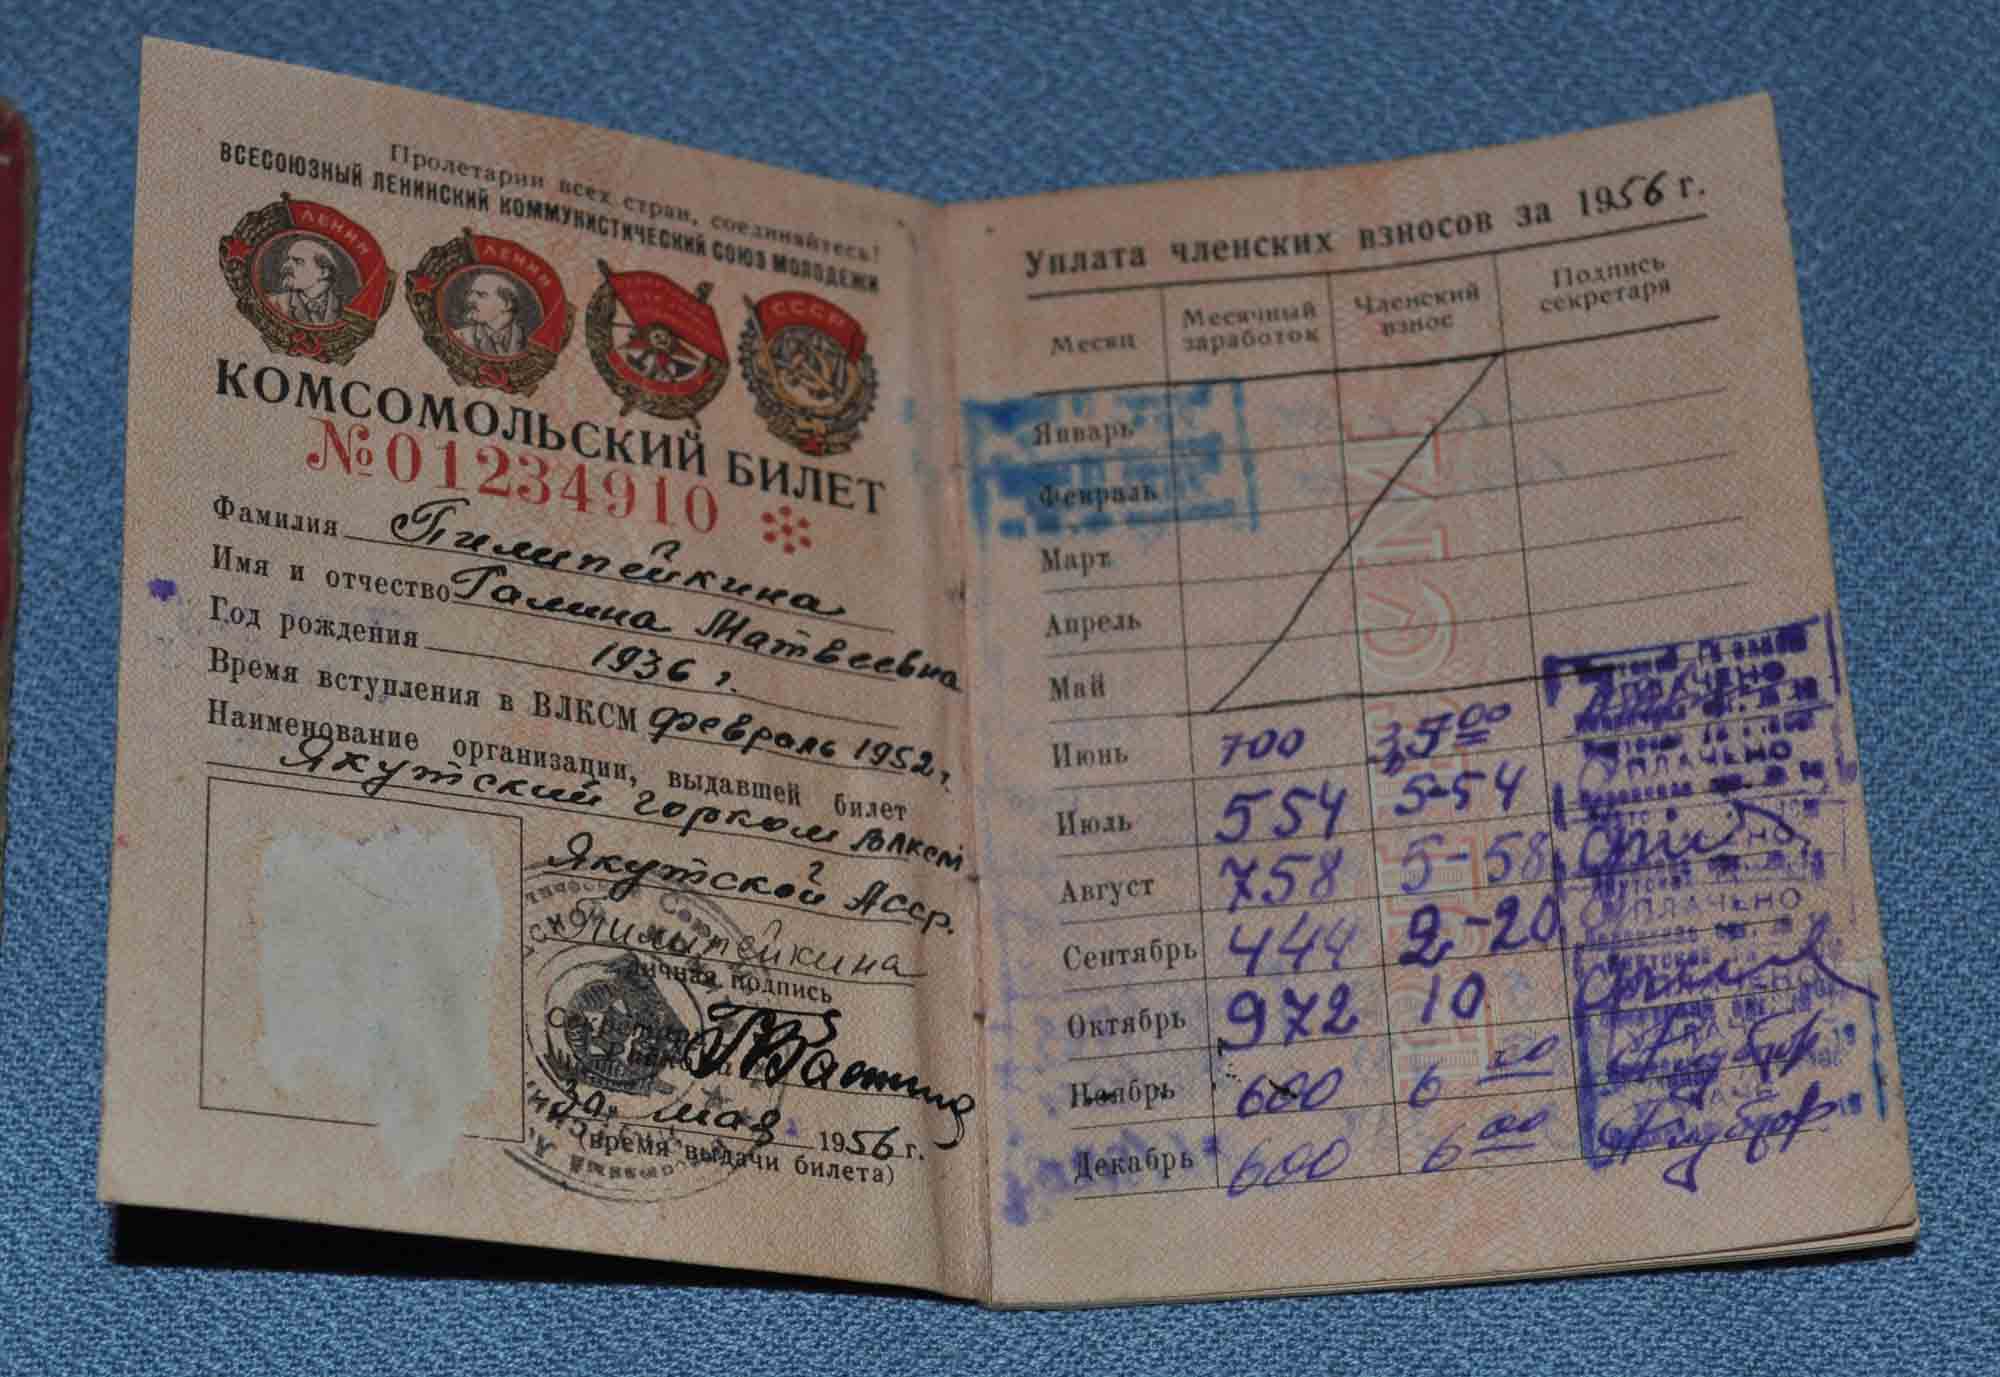 Пролетарии всех стран, соединяйтесь!
ВСЕСОЮЗНЫЙ ЛЕНИНСКИЙ КОММУНИСТИЧЕСКИЙ СОЮЗ МОЛОДЕЖИ
ЛЕНИН ЛЕНИН СССР
КОМСОМОЛЬСКИЙ БИЛЕТ
№01234910
Фамилия Пилипейкина
Имя и отчество Галина Матвеевна
Год рождения 1936 г.
Время вступления в ВЛКСМ февраль 1952 г.
Наименование организации, выдавшей билет
Якутский горком ВЛКСМ
Якутской АССР.
Пилипейкина
Личная подпись
Секретарь
30 мая 1956 г.
(время выдачи билета)
Уплата членских взносов за 1956 г.
Месяц Месячный заработок Членский взнос Подпись секретаря
Январь
Февраль
Март
Апрель
Май
Июнь 700
Июль 554 5-54
Август 758 5-58
Сентябрь 444 2-20
Октябрь 972 10
Ноябрь 600 6 00
Декабрь 600 6 00
УПЛАЧЕНО
УПЛАЧЕНО
УПЛАЧЕНО